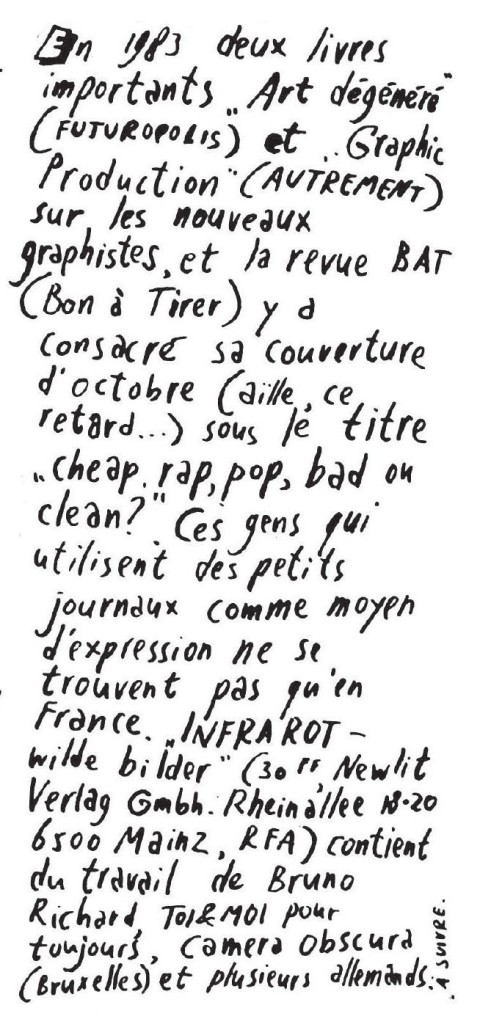 En 1983 deux livres
importants „Art dégénéré"
(FUTUROPOLIS) et „Graphic
Production" (AUTREMENT)
sur les nouveaux
graphistes, et la revue BAT
(Bon à Tirer) y a
consacré sa couverture
d'octobre (aïlle, ce
retard...) sous le titre
„cheap, rap, pop, bad ou
clean?" Ces gens qui
utilisent des petits
journaux comme moyen
d'expression ne se
trouvent pas qu'en
France. „INFRAROT -
wilde bilder" (30 FF, Newlit
Verlag Gmbh. Rheinallee 18-20
6500 Mainz, RFA) contient
du travail de Bruno
Richard, TOI&MOI pour
toujours, Camera obscura
(Bruxelles) et plusieurs allemands.
A SUIVRE.